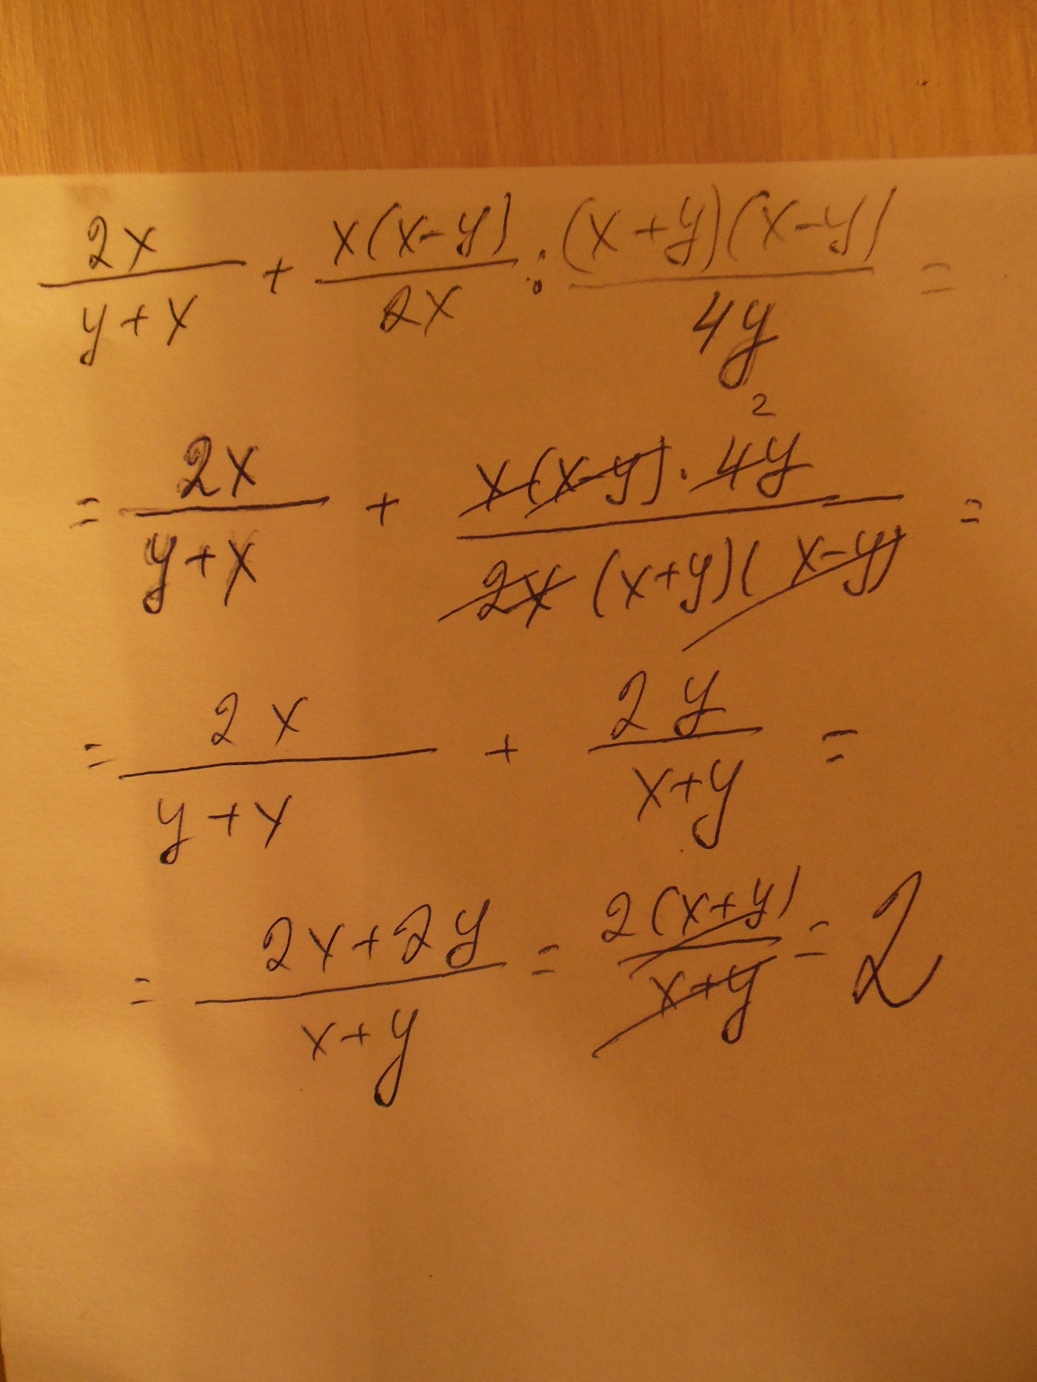 2x/(y+x) + x(x-y)/2x : (x+y)(x-y)/4y =
= 2x/(y+x) + x(x-y)·4y 2/2x(x+y)(x-y) =
= 2x/(y+x) + 2y/(x+y) =
= (2x+2y)/(x+y) = 2(x+y)/(x+y) = 2